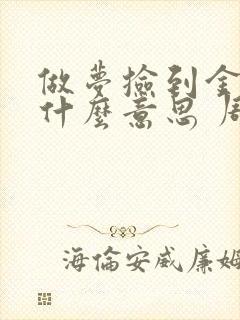 做夢撿到金
什麼意思 周
海倫安威廉姆